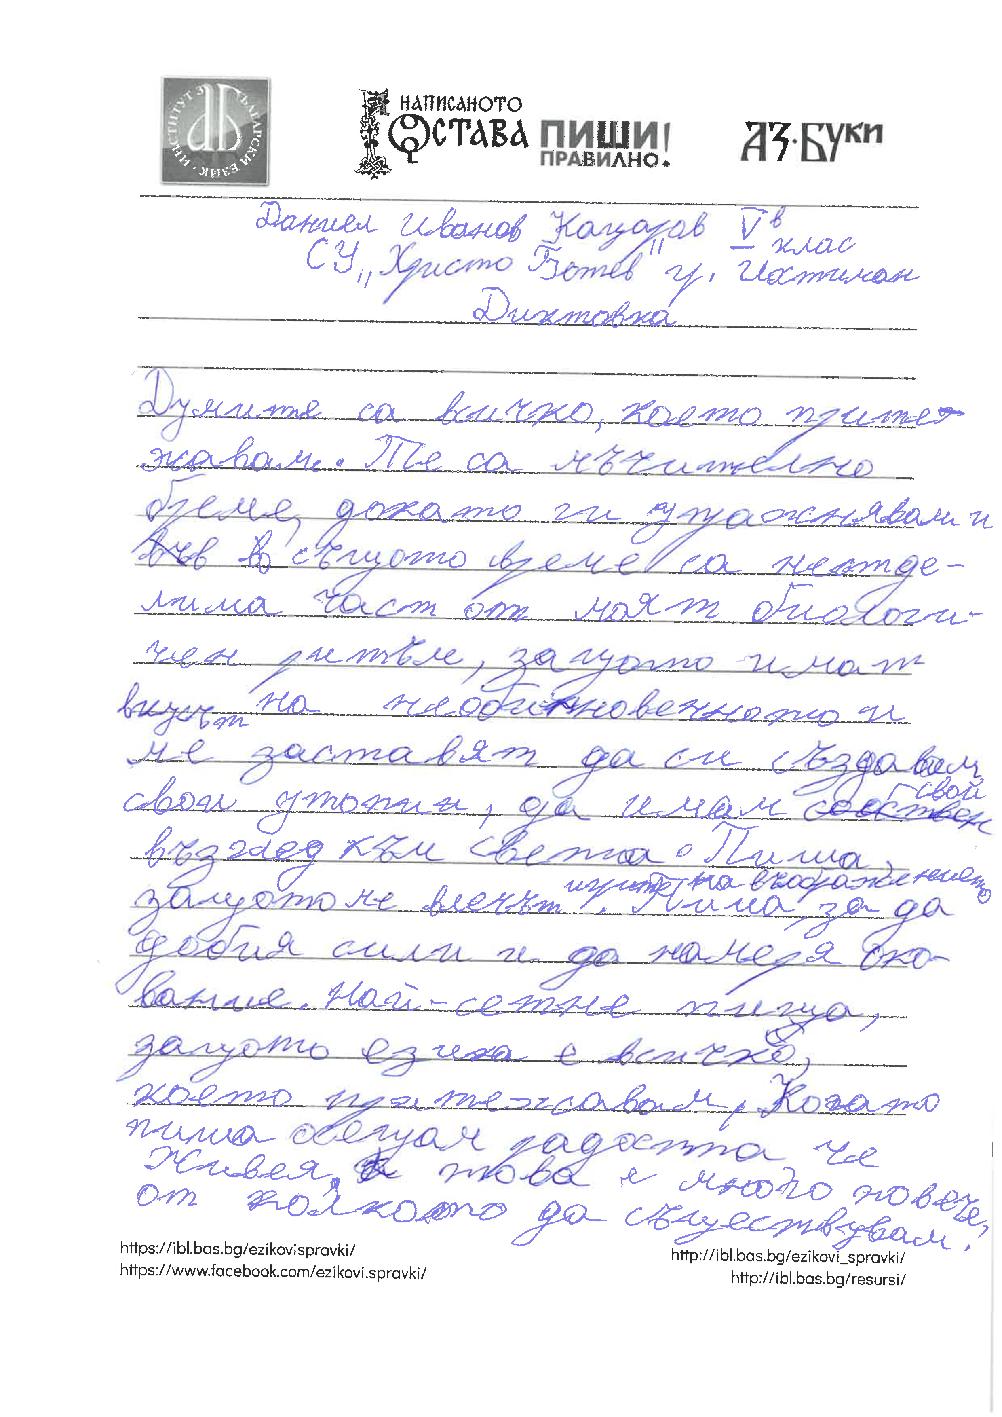 ИНСТИТУТ ЗА БЪЛГАРСКИ ЕЗИК
НАПИСАНОТО
ОСТАВА ПИШИ
ПРАВИЛНО!
АЗ·БУКИ
Даниел Иванов Кацаров V в клас
СУ „Христо Ботев" гр. Ихтиман
Диктовка
Думите са всичко, което прите-
жавам. Те са мъчително
бреме, докато ги упражнявам и
в същото време са неотде-
лима част от моят биологи-
чен ритъм, защото имат
вкусът на необикновенното и
ме заставят да си създавам
свои утопии, да имам свой
възглед към света. Пиша,
защото ме влечът игрите на въображението. Пиша, за да
добия сили и да намеря око-
вание. Най-сетне пиша,
защото езика е всичко,
което притежавам. Когато
пиша обещам радостта че
живея, а това е много повече,
от колкото да съществувам.
https://ibl.bas.bg/ezikovispravki/
https://www.facebook.com/ezikovi.spravki/
http://ibl.bas.bg/ezikovi_spravki/
http://ibl.bas.bg/resursi/